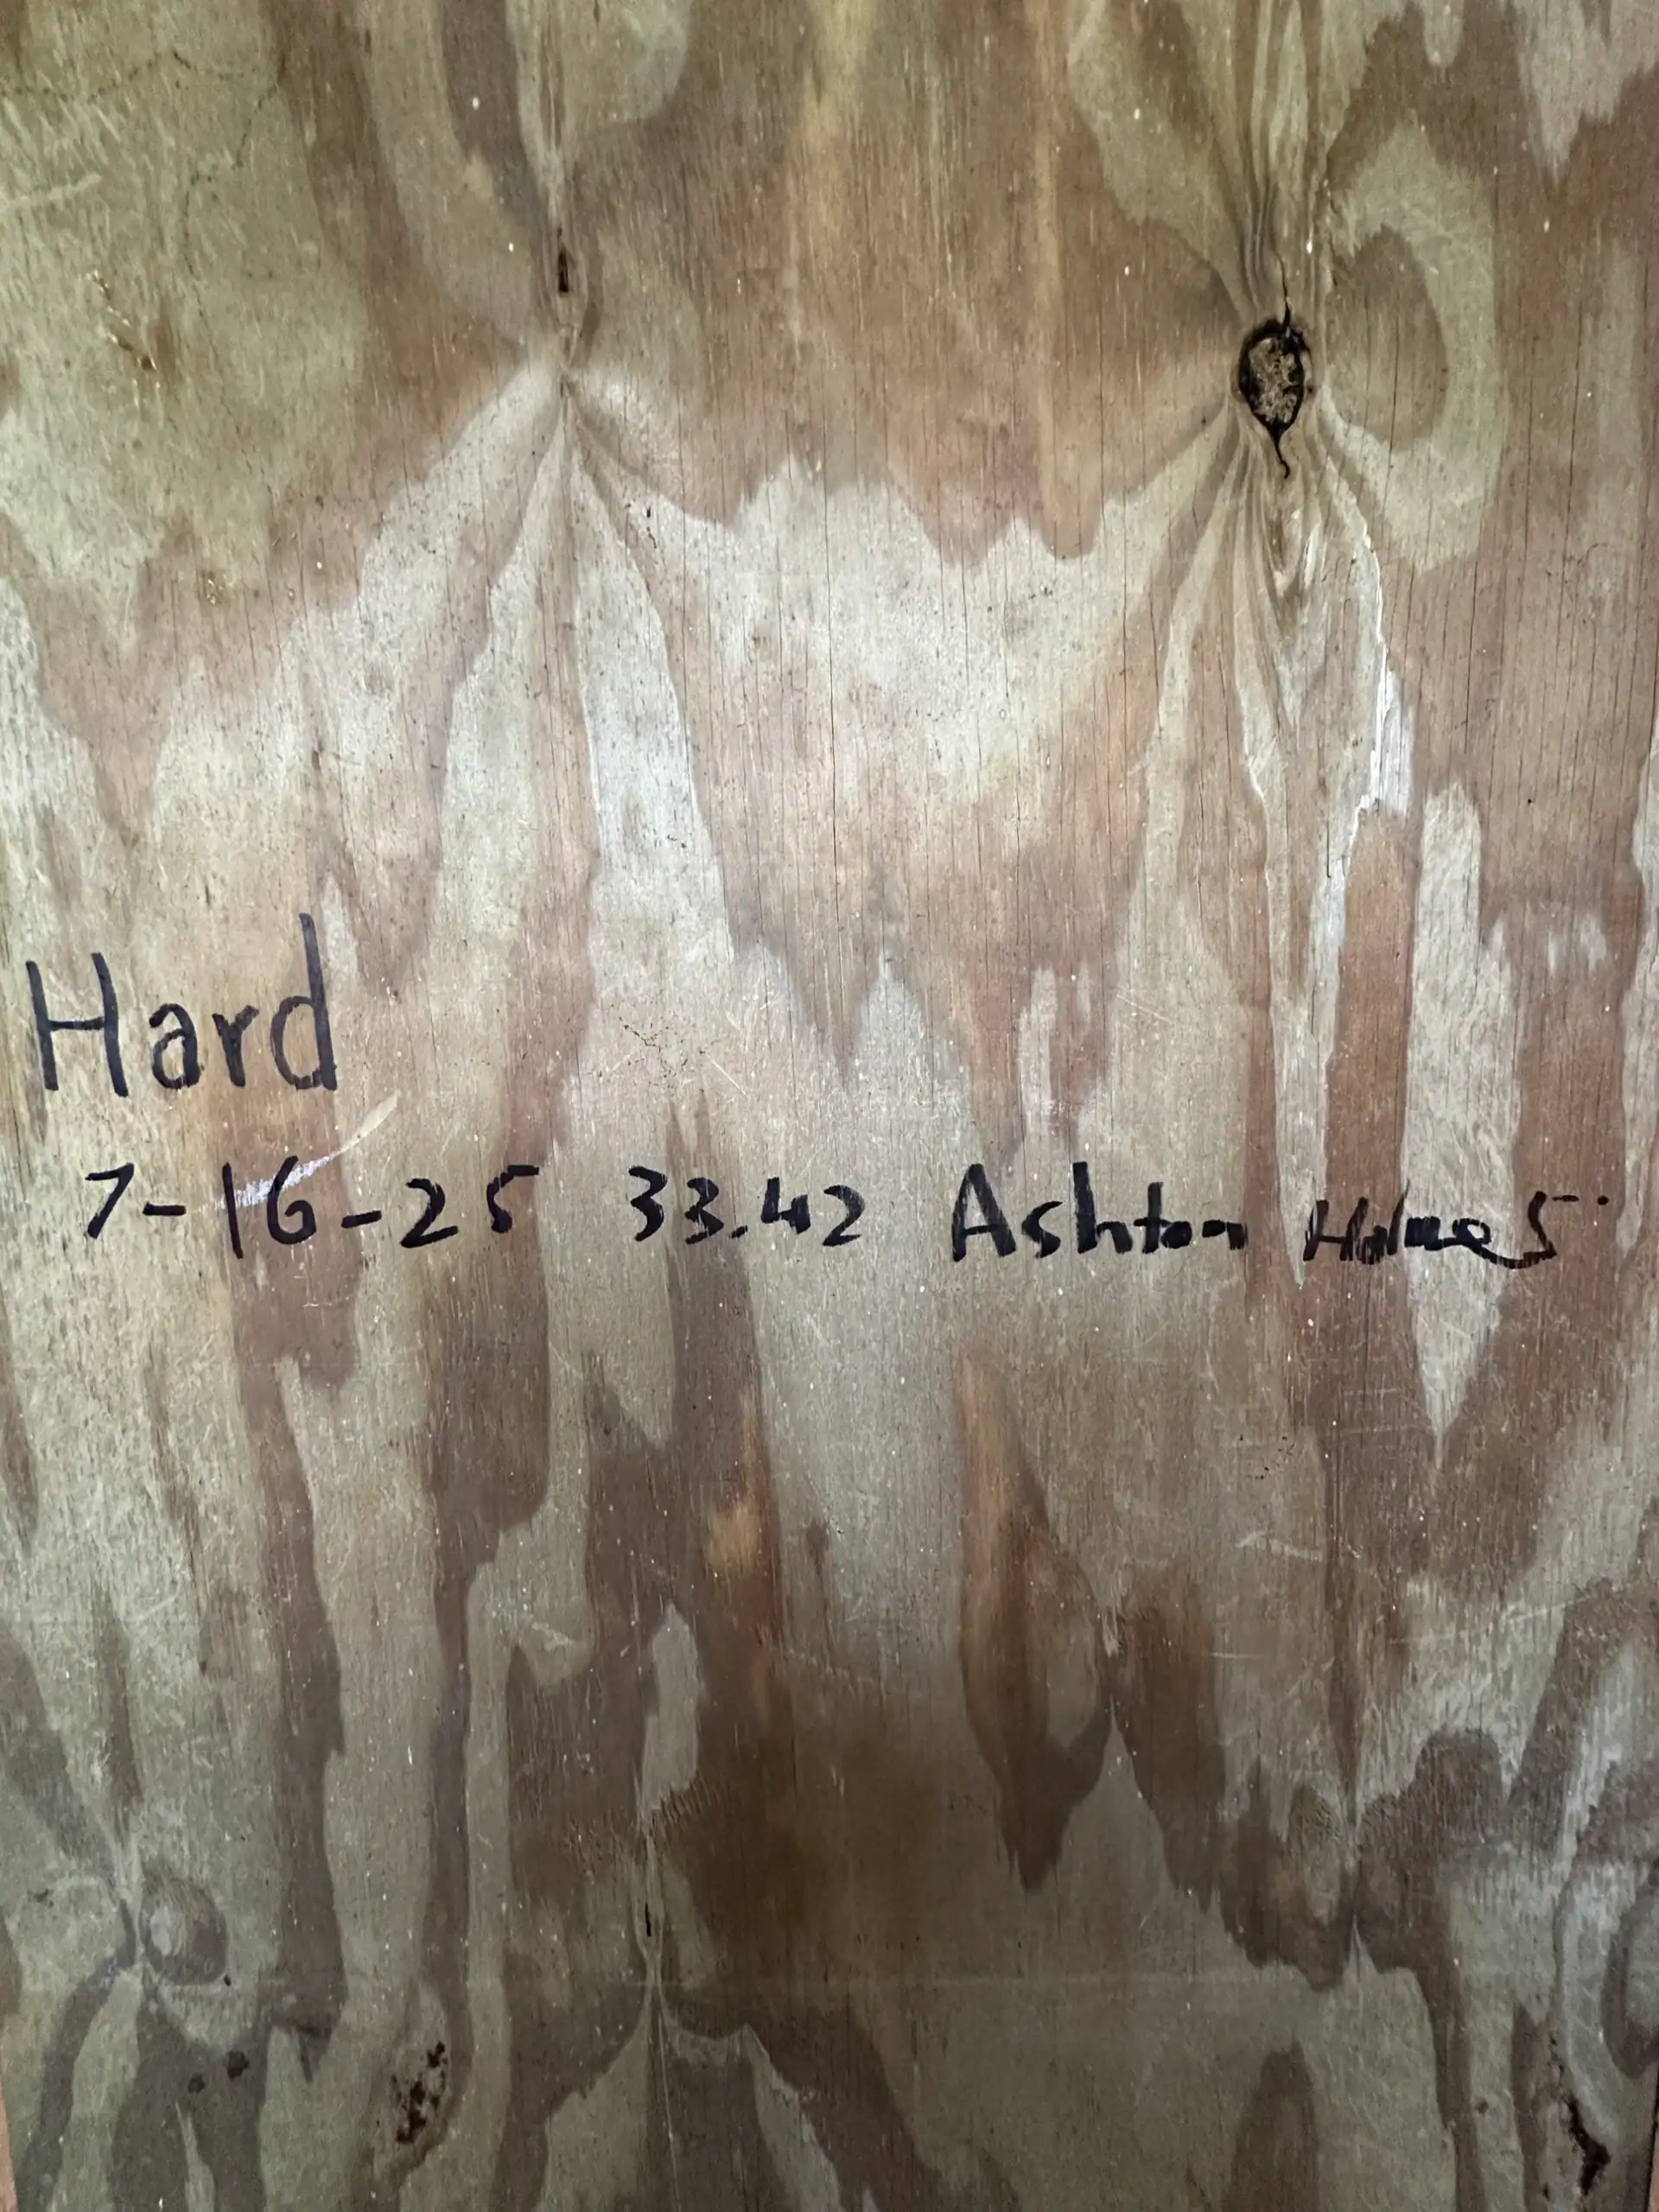 Hard
7-16-25 33.42 Ashton Holmes